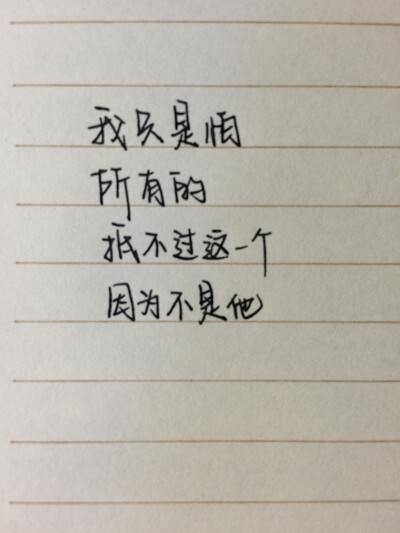 我只是怕
所有的
抵不过这一个
因为不是他